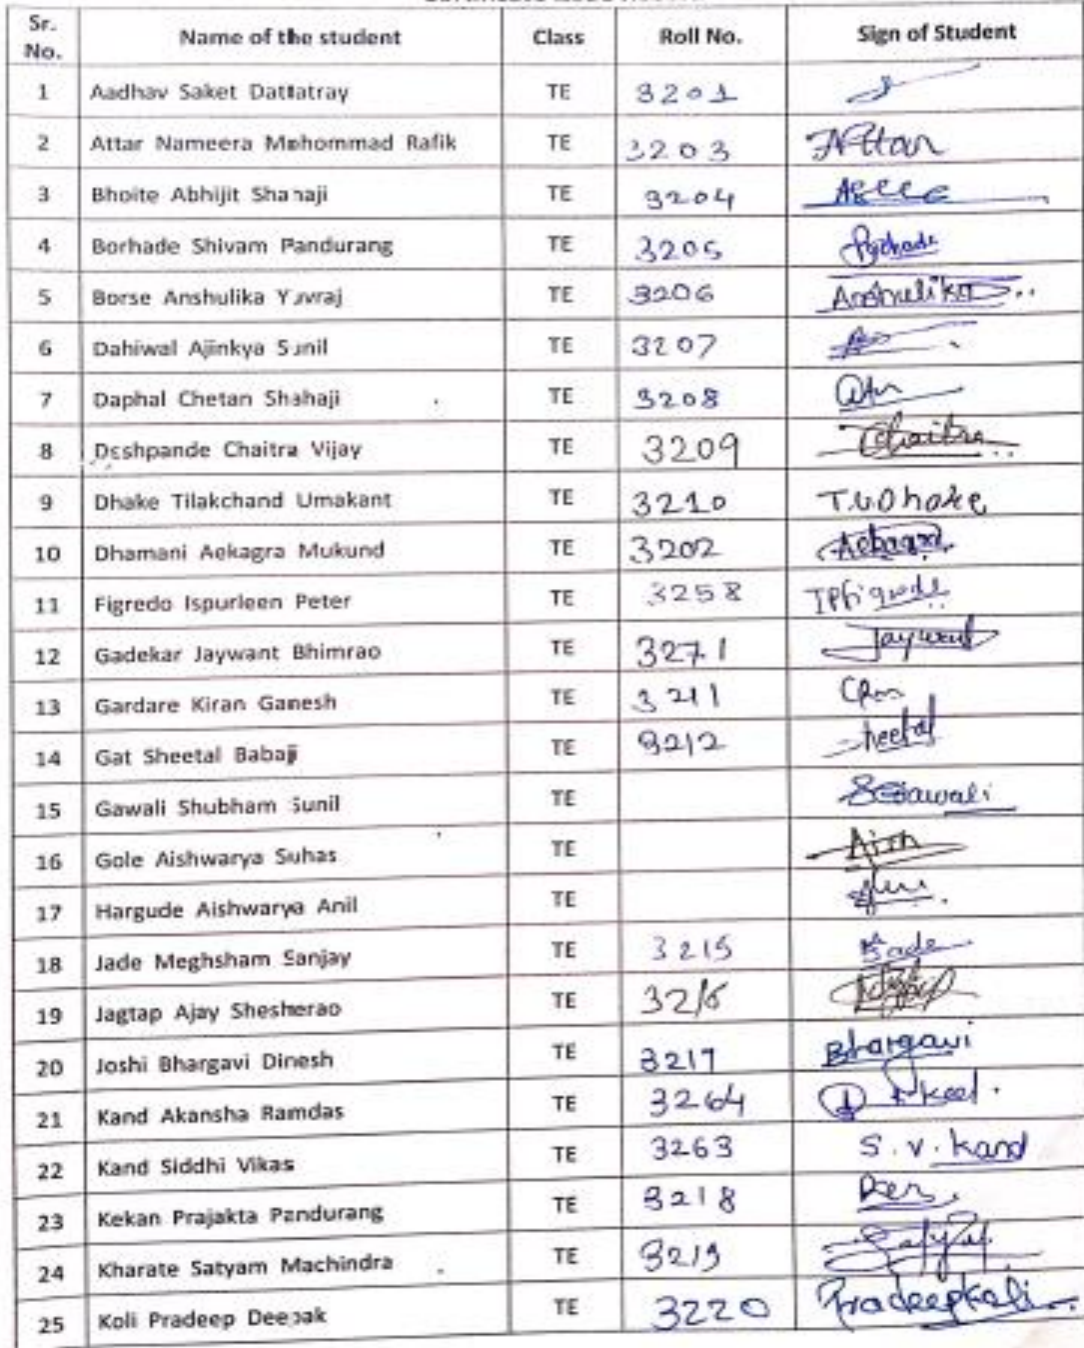 Sr. No. Name of the student Class Roll No. Sign of Student
1 Aadhav Saket Dattatray TE 3201
2 Attar Nameera Mohommad Rafik TE 3203 Attar
3 Bhoite Abhijit Shahaji TE 3204
4 Borhade Shivam Pandurang TE 3205 Borhade
5 Borse Anshulika Yuvraj TE 3206 Anshulika
6 Dahiwal Ajinkya Sunil TE 3207
7 Daphal Chetan Shahaji TE 3208
8 Deshpande Chaitra Vijay TE 3209 Chaitra
9 Dhake Tilakchand Umakant TE 3210 T.U.Dhake
10 Dhamani Aekagra Mukund TE 3202 Aekagra
11 Figredo Ispurleen Peter TE 3258
12 Gadekar Jaywant Bhimrao TE 3271 Jaywant
13 Gardare Kiran Ganesh TE 3211
14 Gat Sheetal Babaji TE 3212 Sheetal
15 Gawali Shubham Sunil TE SGawali
16 Gole Aishwarya Suhas TE
17 Hargude Aishwarya Anil TE
18 Jade Meghsham Sanjay TE 3215 Jade
19 Jagtap Ajay Shesherao TE 3216
20 Joshi Bhargavi Dinesh TE 3217 Bhargavi
21 Kand Akansha Ramdas TE 3264
22 Kand Siddhi Vikas TE 3263 S.V.Kand
23 Kekan Prajakta Pandurang TE 3218
24 Kharate Satyam Machindra TE 3219
25 Koli Pradeep Deepak TE 3220 PradeepKoli